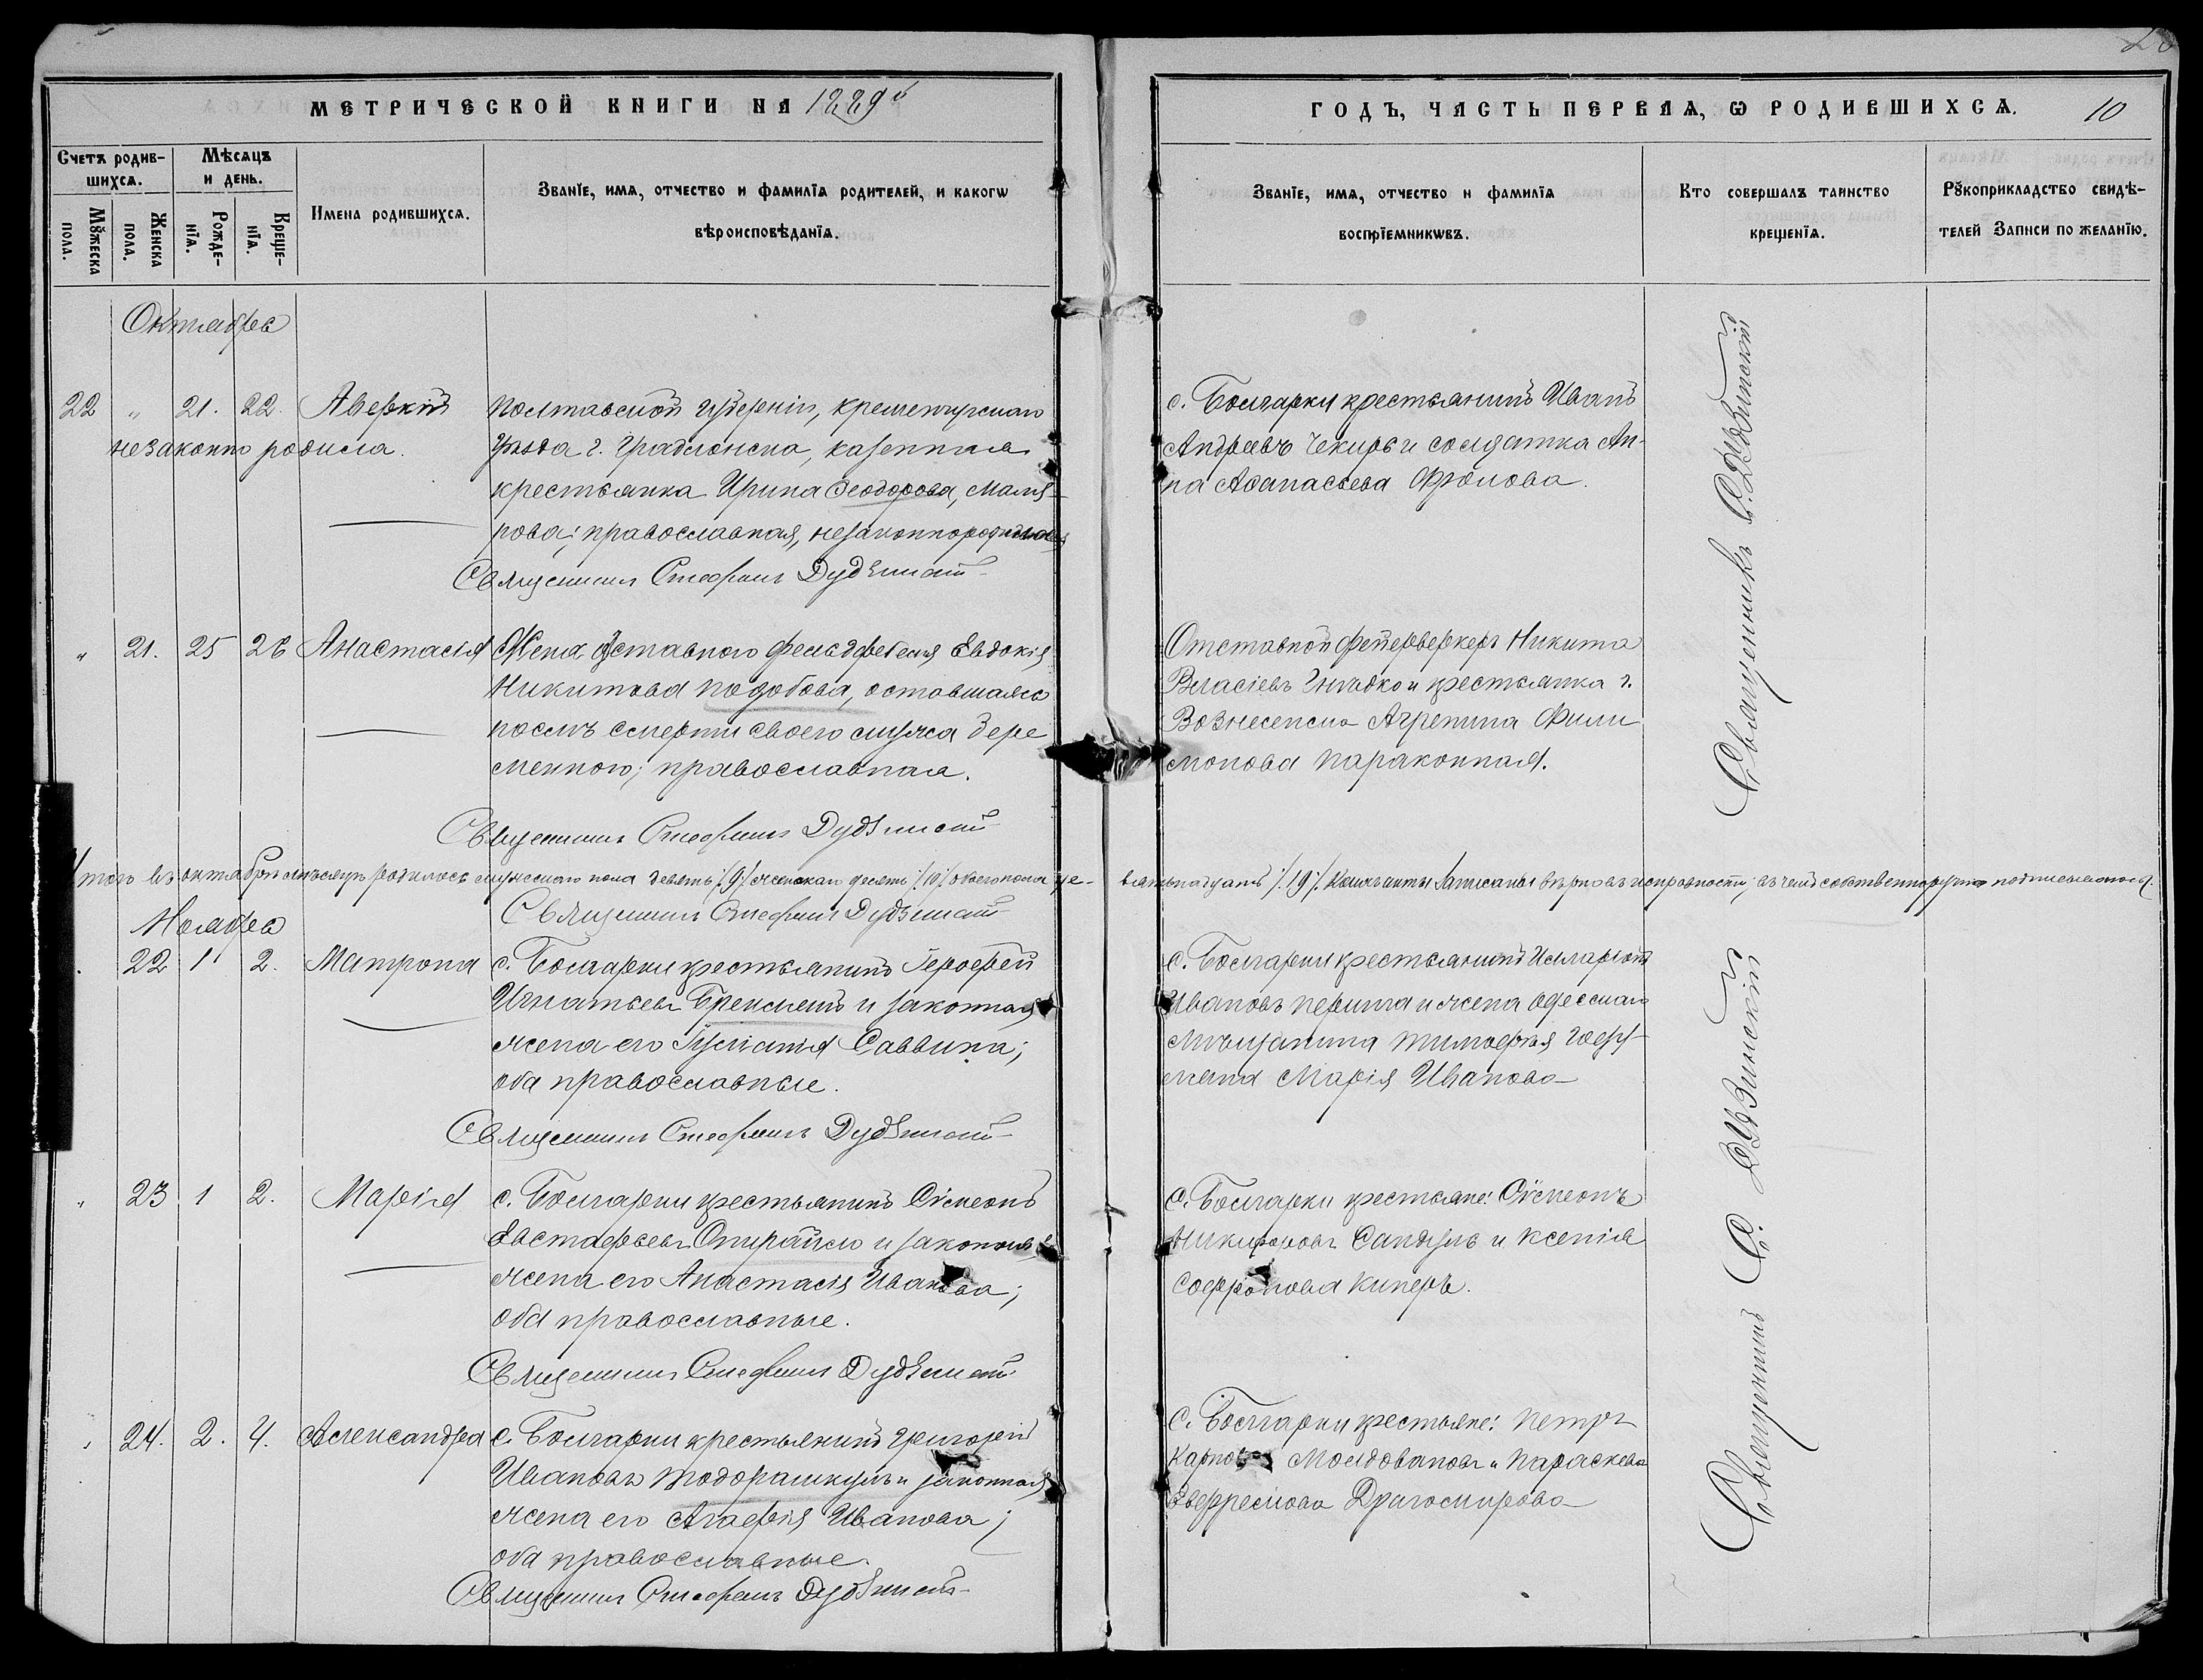 МЕТРИЧЕСКОЙ КНИГИ НА 1889й
ГОДЪ, ЧАСТЬ ПЕРВАЯ, Ѡ РОДИВШИХСѦ. 10
Счетъ родив-
шихсѧ.
Мѣсѧцъ
и день.
Мꙋжеска
пола.
Женска
пола.
Рожде-
нїѧ.
Креще-
нїѧ.
Имена родившихсѧ.
Званїе, имѧ, отчество и фамилїѧ родителей, и какогѡ
вѣроисповѣданїѧ.
Званїе, имѧ, отчество и фамилїѧ
воспрїемникѡвъ.
Кто совершалъ таинство
крещенїѧ.
Рꙋкоприкладство свидѣ-
телей Записи по желанїю.
Октября
22 " 21. 22. Аверкій
незаконно родился.
Полтавской губерніи, Кременчугскаго
уѣзда г. Градижска, казенная
крестьянка Ирина Ѳеодорова,
рова; православная,
Священникъ Стефанъ Дудзинскій
с. Болгарки крестьянинъ Иванъ
Андреевъ Чекиръ и солдатка Ан-
на Аѳанасьева Фролова.
Священникъ С. Дѣвинскій
" 21. 25 26 Анастасія
Жена отставного фельдфебеля Евдокія
Никитова Подобова, оставшаяся
послѣ смерти своего мужа бере
менною; православная.
Священникъ Стефанъ Дудзинскій
Отставной фейерверкеръ Никита
Власіевъ Гнидко и крестьянка г.
Вознесенска Агрепина Фили
монова Параконная.
Итого въ октябрѣ мѣсяцѣ родилось мужескаго пола девять /9/ женскаго десять /10/ обоего пола де-
вятьнадцать /19/. Каковые акты записаны вѣрно въ исправности; въ чемъ собственноручно подписываюсь.
Священникъ Стефанъ Дудзинскій
Ноября
22 1 2. Матрона
с. Болгарки крестьянинъ Героѳей
Игнатьевъ и законная
жена его Іуліанія Саввина;
оба православные.
Священникъ Стефанъ Дудзинскій
с. Болгарки крестьянинъ Иларіонъ
Ивановъ Перита и жена Одесскаго
мѣщанина Тимоѳея
Марія Иванова
Священникъ С. Дѣвинскій
" 23 1 2. Марія
с. Болгарки крестьянинъ Сѵмеонъ
Евстафьевъ и законная
жена его Анастасія Иванова;
оба православные.
Священникъ Стефанъ Дудзинскій
с. Болгарки крестьяне: Сѵмеонъ
Никифоровъ Сандулъ и Ксенія
Софронова Киперъ.
24. 2. 4. Александра
с. Болгарки крестьянинъ Григорій
Ивановъ Тодорашкулъ и законная
жена его Агафія Иванова;
оба православные.
Священникъ Стефанъ Дудзинскій
с. Болгарки крестьяне: Петръ
Карповъ Молдовановъ и Параскева
Евфремова Драгомирова